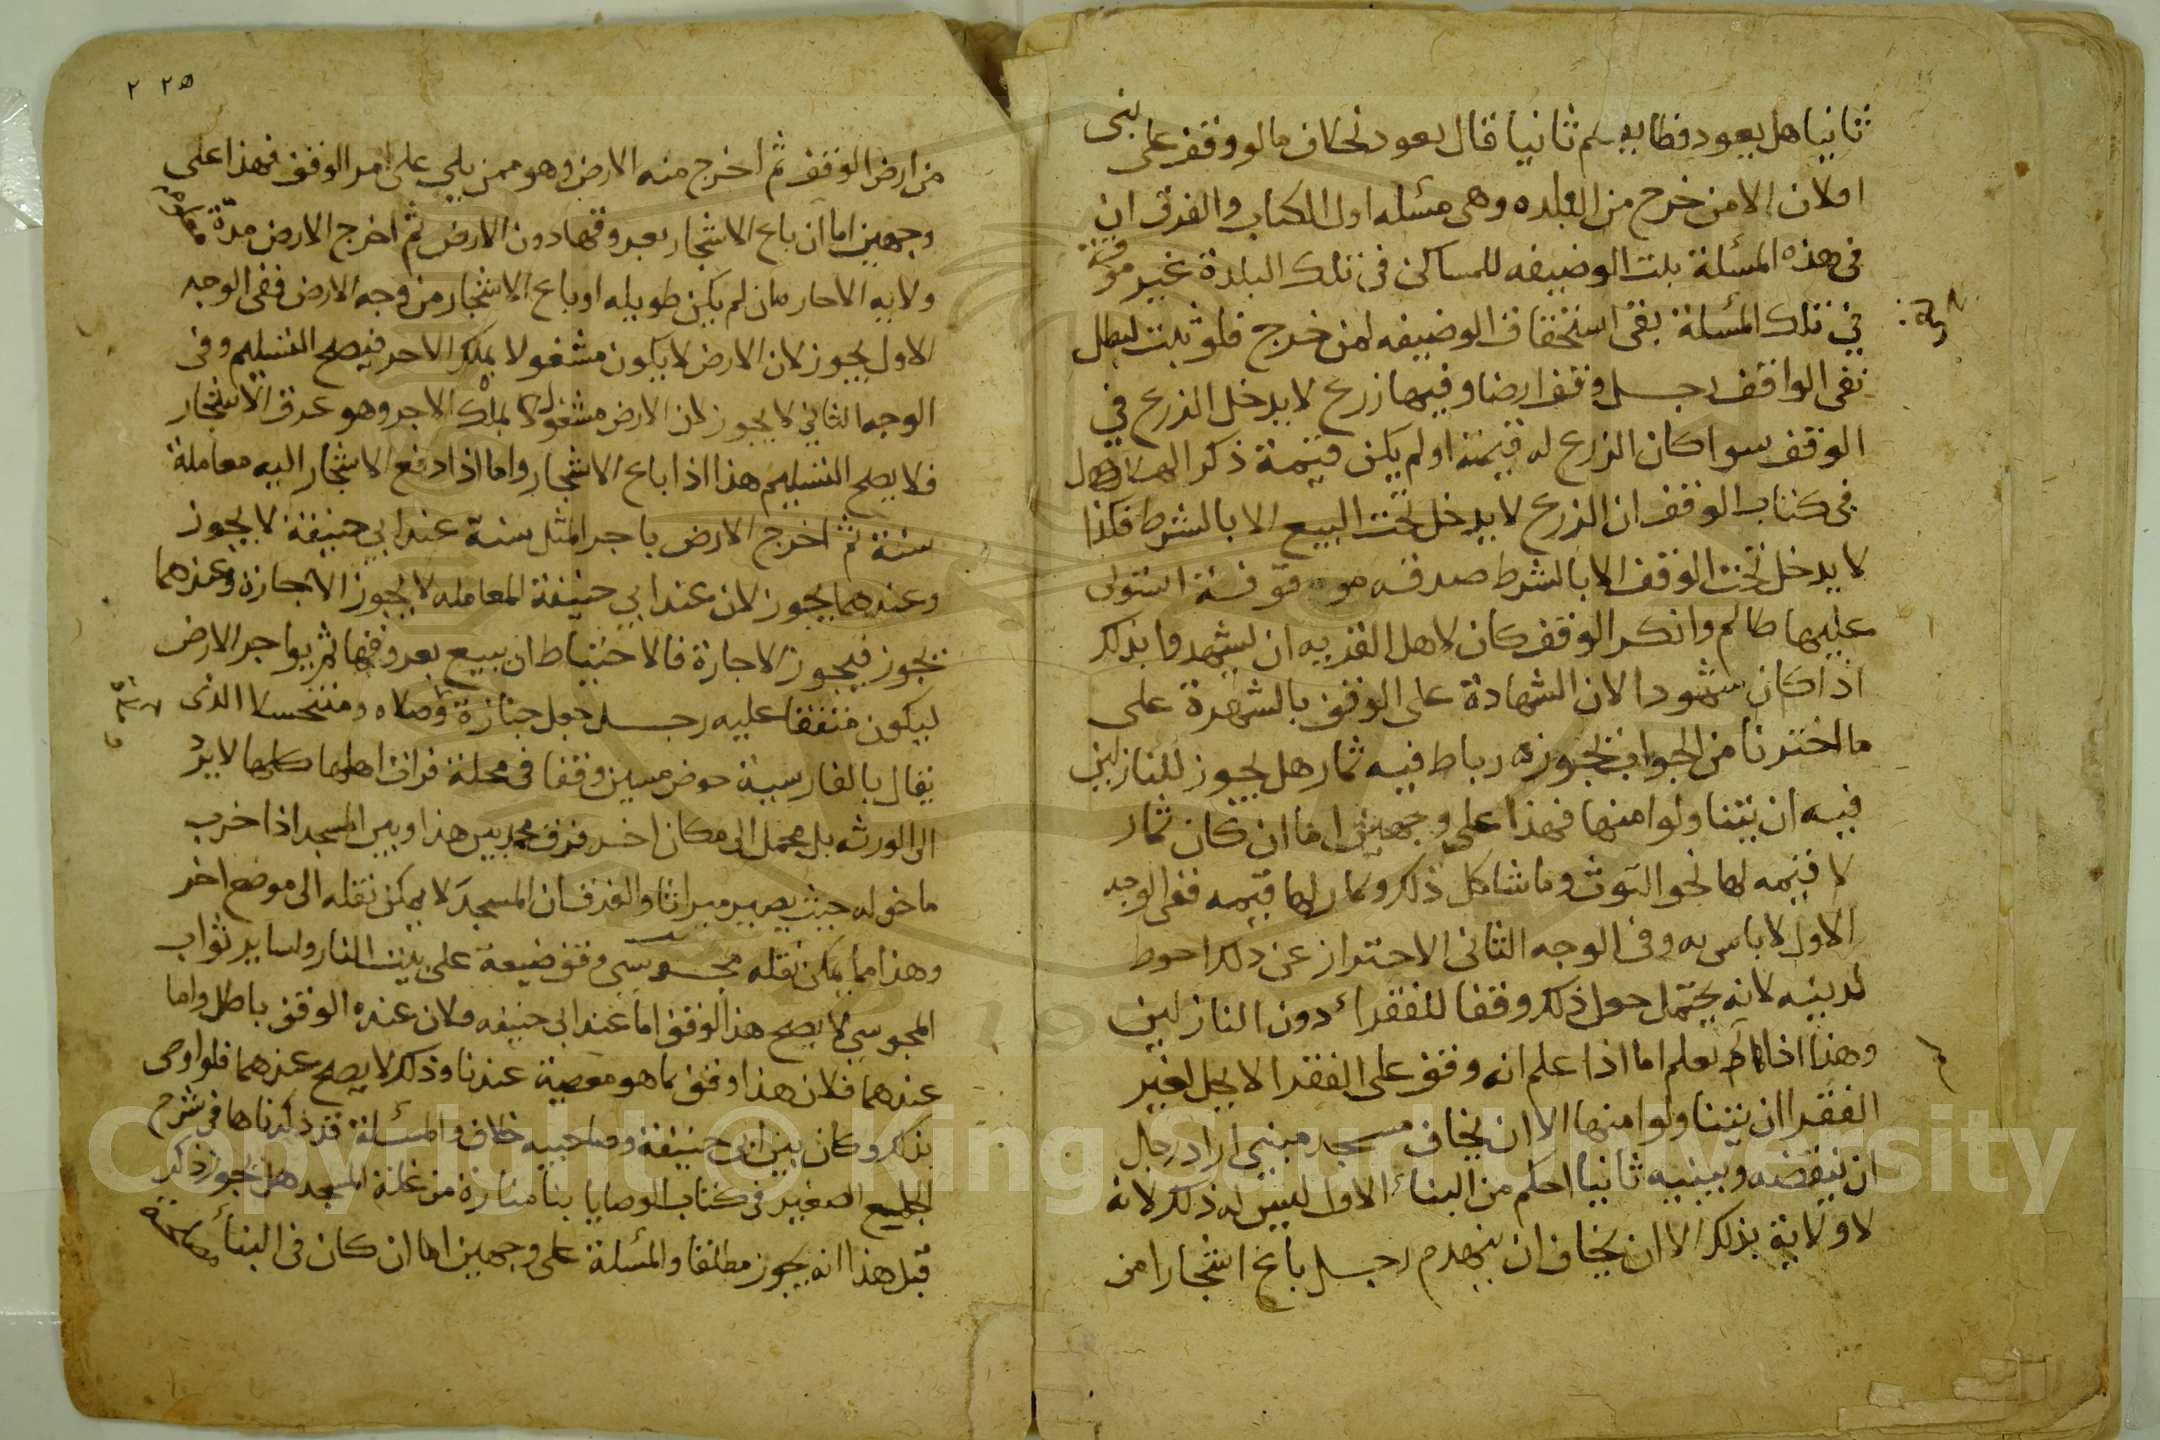 ثانيا هل يعود وظايفهم ثانيا قال يعود بخلاف ما لو وقف على بنى
اولان الا من خرج من البلده وهى مسئله اول الكتاب والفرق ان
فى هذه المسئلة بلت الوضيفه للمساكن فى تلك البلدة غير موقتة
في تلك المسئلة بقى استحقاق الوضيفه لمن خرج فلو ثبت لبطل
نفى الواقف رجل وقف ارضا وفيها زرع لا يدخل الزرع في
الوقف سوا كان الزرع له قيمة او لم يكن قيمة ذكر هلال
في كتاب الوقف ان الزرع لا يدخل تحت البيع الا بالشرط فكذا
لا يدخل تحت الوقف الا بالشرط صدقه موقوفة استولى
عليها ظالم وانكر الوقف كان لاهل القريه ان يشهدوا بذلك
اذا كان شهودا لان الشهادة على الوقف بالشهرة على
ما اخترنا من الجواب تجوزه رباط فيه ثمار هل يجوز للنازلين
فيه ان يتناولوا منها فهذا على وجهين اما ان كان ثمار
لا قيمه لها نحو التوث وما شاكل ذلك وثمار لها قيمه ففى الوجه
الاول لا باس به وفى الوجه الثانى الاحتراز عن ذلك احوط
لدينه لانه يحتمل جعل ذلك وقفا للفقراء دون النازلين
وهذا اذا لم يعلم اما اذا علم انه وقف على الفقرا لا يحل لغير
الفقرا ان يتناولوا منها الا ان يخاف مسجد مبنى اراد رجل
ان ينقضه ويبنيه ثانيا احكم من البناء الاول ليس له ذلك لانه
لا ولاية بذلك الا ان يخاف ان ينهدم رجل باع اشجارا من
٢٢٥ ٢
من ارض الوقف ثم اخرج منه الارض وهو ممن يلي على امر الوقف فهذا على
وجهين اما ان باع الاشجار بعروقها دون الارض ثم اخرج الارض مدة
ولايه الاجار ان لم يكن طويله او باع الاشجار من وجه الارض ففى الوجه
الاول يجوز لان الارض لا يكون مشغولا بملك الاجر فيصح التسليم وفى
الوجه الثاني لا يجوز لان الارض مشغولا بملك الاجر وهو عرق الاشجار
فلا يصح التسليم هذا اذا باع الاشجار واما اذا دفع الاشجار اليه معاملة
سنة ثم اخرج الارض باجر المثل سنة عند ابي حنيفة لا يجوز
وعندهما يجوز لان عند ابي حنيفة المعامله لا يجوز الاجازة وعندهما
تجوز فيجوز الاجارة فالاحتياط ان يبيع بعروقها ثم يواجر الارض
ليكون متفقا عليه رجل جعل جنازة وصلاه ومغتسلا الذى
يقال بالفارسية حوض مسين وقفا فى محلة فرات اهلها كلها لا يرد
الى الورثه بل يحمل الى مكان اخر فرق محمد بين هذا وبين المسجد اذا خرب
ما حوله حيث يصير ميراثا والفرق ان المسجد لا يمكن نقله الى موضع اخر
وهذا مما يمكن نقله مجوسى وقف ضيعة على بيت النار ولساير ثواب
المجوسي لا يصح هذا الوقف اما عند ابى حنيفه فلان عنده الوقف باطل واما
عندهما فلان هذا وقف بما هو معصية عندنا وذلك لا يصح عندهما فلو اوصى
بذلك وكان بين ابى حنيفة وصاحبيه خلاف والمسئلة قد ذكرناها فى شرح
الجامع الصغير فى كتاب الوصايا بنا منارة من غلة المسجد هل يجوز ذكر
قبل هذا انه يجوز مطلقا والمسئلة على وجهين اما ان كان فى البناء مصلحة
Copyright © King Saud University